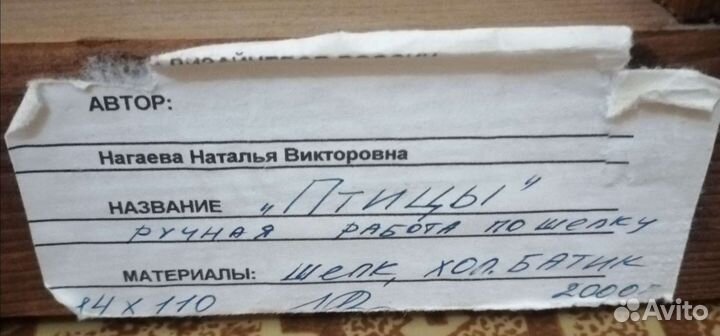 АВТОР:
Нагаева Наталья Викторовна
НАЗВАНИЕ „Птицы"
РУЧНАЯ РАБОТА ПО ШЕЛКУ
МАТЕРИАЛЫ: ШЕЛК, ХОЛ. БАТИК
84 х 110 2000г
Avito